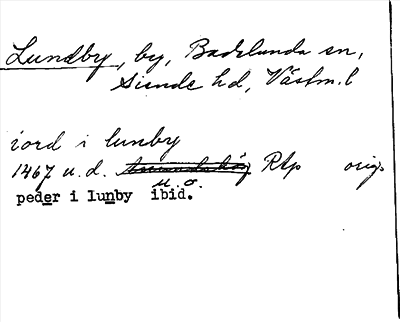 Lundby, by, Badelunda sn,
Siende hd, Västm. l
iord i lunby
1467 u.d. Rap orig.
u. o.
peder i lunby ibid.